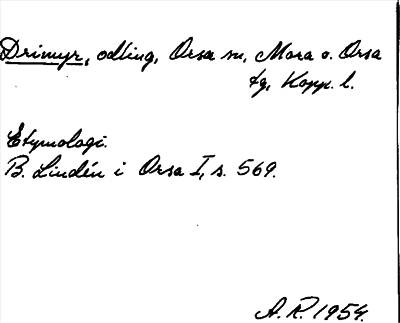 Drimyr, odling, Orsa sn, Mora o. Orsa
tg, Kopp. l.
Etymologi.
B. Lindén i Orsa I, s. 569.
A.R. 1954.